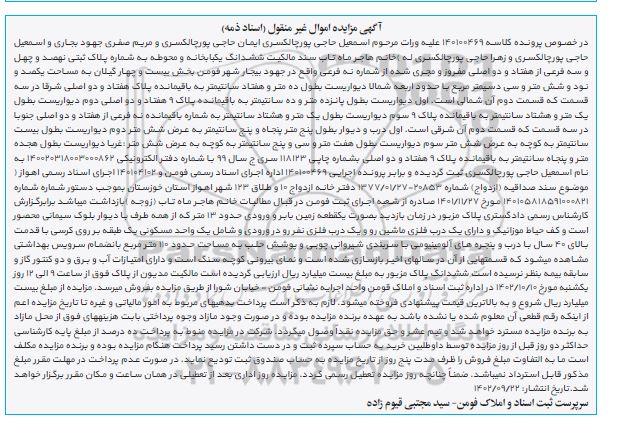 آگهی مزایده اموال غیر منقول (اسناد ذمه)
در خصوص پرونده کلاسه ۱۴۰۱۰۰۴۶۹ علیه وراث مرحوم اسمعیل حاجی پورچالکسری ایمان حاجی پورچالکسری و مریم صفری جهود بجاری و اسمعیل
حاجی پورچالکسری و زهرا حاجی پورچالکسری له : خانم هاجر ماه تاب سند مالکیت ششدانگ یکبابخانه و محوطه به شماره پلاک ثبتی نهصد و چهل
و سه فرعی از هفتاد و دو اصلی مفروز و مجزی شده از شماره نه فرعی واقع در جهود بیجار شهر فومن بخش بیست و چهار گیلان به مساحت یکصد و
نود و شش متر و سی دسیمتر مربع با حدود اربعه شمالا دیواریست بطول ده متر و هفتاد سانتیمتر به باقیمانده پلاک هفتاد و دو اصلی شرقا در سه
قسمت که قسمت دوم آن شمالی است. اول دیواریست بطول پانزده متر و ده سانتیمتر به باقیمانده پلاک ۹ هفتاد و دو اصلی دوم دیواریست بطول
یک متر و هشتاد سانتیمتر به باقیمانده پلاک ۹ سوم دیواریست بطول یک متر و هشتاد سانتیمتر به شماره باقیمانده نه فرعی از هفتاد و دو اصلی جنوبا
در سه قسمت که قسمت دوم آن شرقی است. اول درب و دیوار بطول پنج متر پنجاه و پنج سانتیمتر به عرض شش متر دوم دیواریست بطول بیست
سانتیمتر به کوچه به عرض شش متر سوم دیواریست بطول هفت متر و سی و پنج سانتیمتر به کوچه به عرض شش متر :غربا دیواریست بطول هجده
متر و پنجاه سانتیمتر به باقیمانده پلاک ۹ هفتاد و دو اصلی بشماره چاپی ۱۱۸۱۲۳ سری ج سال ۹۹ با شماره دفتر الکترونیکی ۱۴۰۰۲۰۳۱۸۰۰۳۰۰۰۸۶۲ به
نام اسمعیل حاجی پورچالکسری ثبت گردیده و برابر پرونده اجرایی ۱۴۰۱۰۰۴۶۹ اداره اجرای اسناد رسمی فومن و ۱۴۰۱۰۴۱۰۲ اجرای اسناد رسمی اهواز (
موضوع سند صداقیه (ازدواج) شماره ۲۰۸۵۳-۱۳۷۷/۰۱/۲۷ دفتر خانه ازدواج ۱۰ و طلاق ۱۲۳ شهر اهواز استان خوزستان بموجب دستور شماره شماره
۱۴۰۱۰۵۸۱۸۵۹۱۰۰۰۸۲۱ مورخ ۱۴۰۱/۱۱/۲۷ صادره از شعبه اجرای ثبت فومن در قبال مطالبات خانم هاجر ماه تاب (زوجه) بازداشت میباشد برابرگزارش
کارشناس رسمی دادگستری پلاک مزبور در زمان بازدید بصورت یکقطعه زمین بابر و ورودی حدود ۱۳ متر که از همه طرف با دیوار بلوک سیمانی محصور
است و کف حیاط موزائیک و دارای یک درب فلزی ماشین رو و یک درب فلزی نفر رو در ورودی و شامل یک واحد مسکونی یک طبقه بر روی کرسی با قدمت
بالای ۴۰ سال با درب و پنجره های آلومینیومی با سربندی شیروانی چوبی و پوشش حلب به مساحت حدود ۱۰۰ متر مربع بانضمام سرویس بهداشتی
مشاهده میشود که قسمتهایی از آن در سالهای اخیر بازسازی شده است و نمای بیرونی کوچه سنگ است و دارای امتیازات آب و برق و دو کنتور گاز و
سابقه بیمه بنظر نرسیده است ششدانگ پلاک مزبور به مبلغ بیست میلیارد ریال ارزیابی گردیده است مالکیت مدیون از پلاک فوق از ساعت ۹ الی ۱۲ روز
یکشنبه مورخ ۱۴۰۲/۱۰/۱۰ در اداره ثبت اسناد و املاک فومن واحد اجراء نشانی فومن - خیابان شورا از طریق مزایده بفروش میرسد. مزایده از مبلغ بیست
میلیارد ریال شروع و به بالاترین قیمت پیشنهادی فروخته میشود. لازم به ذکر است پرداخت بدهیهای مربوطه به امور مالیاتی و غیره تا تاریخ مزایده اعم
از اینکه رقم قطعی آن معلوم شده یا نشده باشد به عهده برنده مزایده بوده و در صورت وجود مازاد وجوه پرداختی بابت هزینههای فوق از محل مازاد
به برنده مزایده مسترد خواهد شد و نیم عشر و حق مزایده نقدا وصول میگردد. شرکت در مزایده منوط به پرداخت ده درصد از مبلغ پایه کارشناسی
حداکثر دو روز قبل از روز مزایده توسط داوطلبین خرید به حساب سپرده ثبت و در دست داشتن رسید پرداخت هنگام مزایده بوده و برنده مزایده مکلف
است ما به التفاوت مبلغ فروش را ظرف مدت پنج روز از تاریخ مزایده به حساب صندوق ثبت تودیع نماید. در صورت عدم پرداخت در مهلت مقرر مبلغ
مذکور قابل استرداد نمیباشد. ضمناً چنانچه روز مزایده تعطیل رسمی گردد، مزایده روز اداری بعد از تعطیلی در همان ساعت و مکان مقرر برگزار خواهد
شد.تاریخ انتشار: ۱۴۰۲/۰۹/۲۲
سرپرست ثبت اسناد و املاک فومن- سید مجتبی قیوم زاده